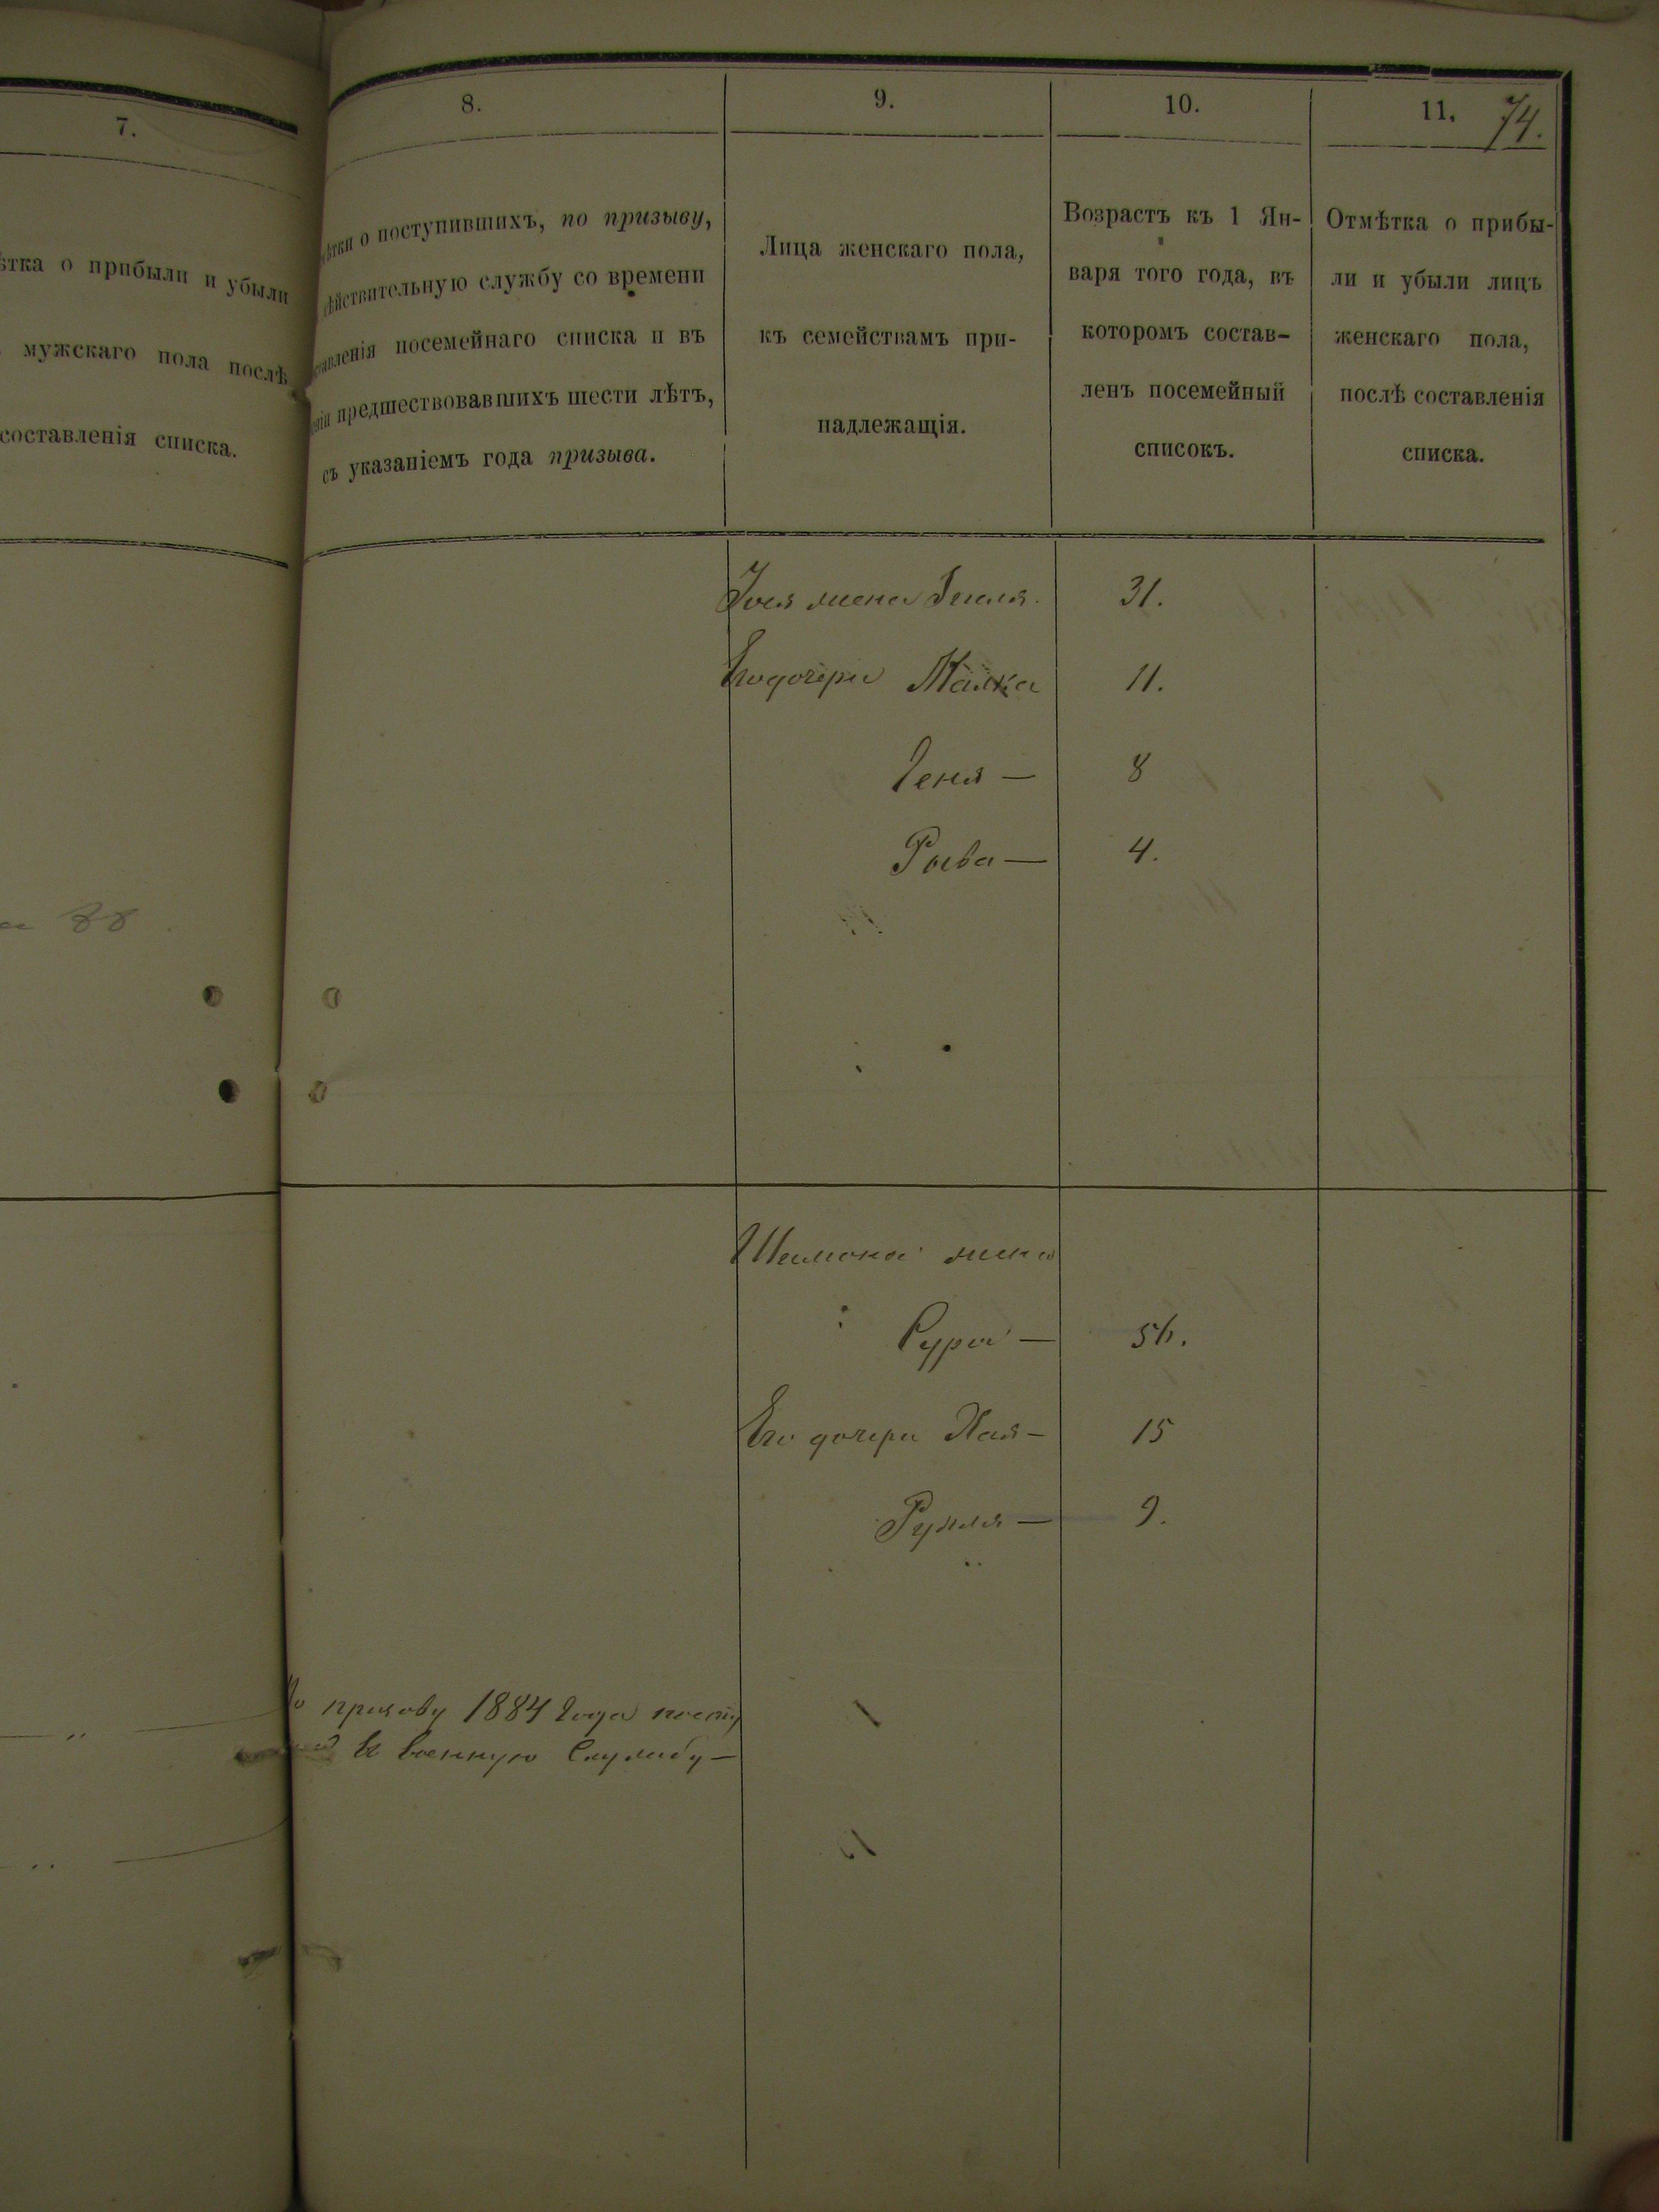 7.
ѣтка о прибыли и убыли
мужскаго пола послѣ
составленія списка.
88
8.
о поступившихъ, по призыву,
дѣйствительную службу со времени
составленія посемейнаго списка и въ
предшествовавшихъ шести лѣтъ,
съ указаніемъ года призыва.
9.
Лица женскаго пола,
къ семействамъ при-
надлежащія.
10.
Возрастъ къ 1 Ян-
варя того года, въ
которомъ состав-
ленъ посемейный
списокъ.
11.
74.
Отмѣтка о прибы-
ли и убыли лицъ
женскаго пола,
послѣ составленія
списка.
жена 31.
Его дочери Малка 11.
Геня — 8
Рыва — 4.
Шимона жена
Сура — 56.
Его дочери Хая — 15
9.
По призову 1884 Года посту
в военную Службу —